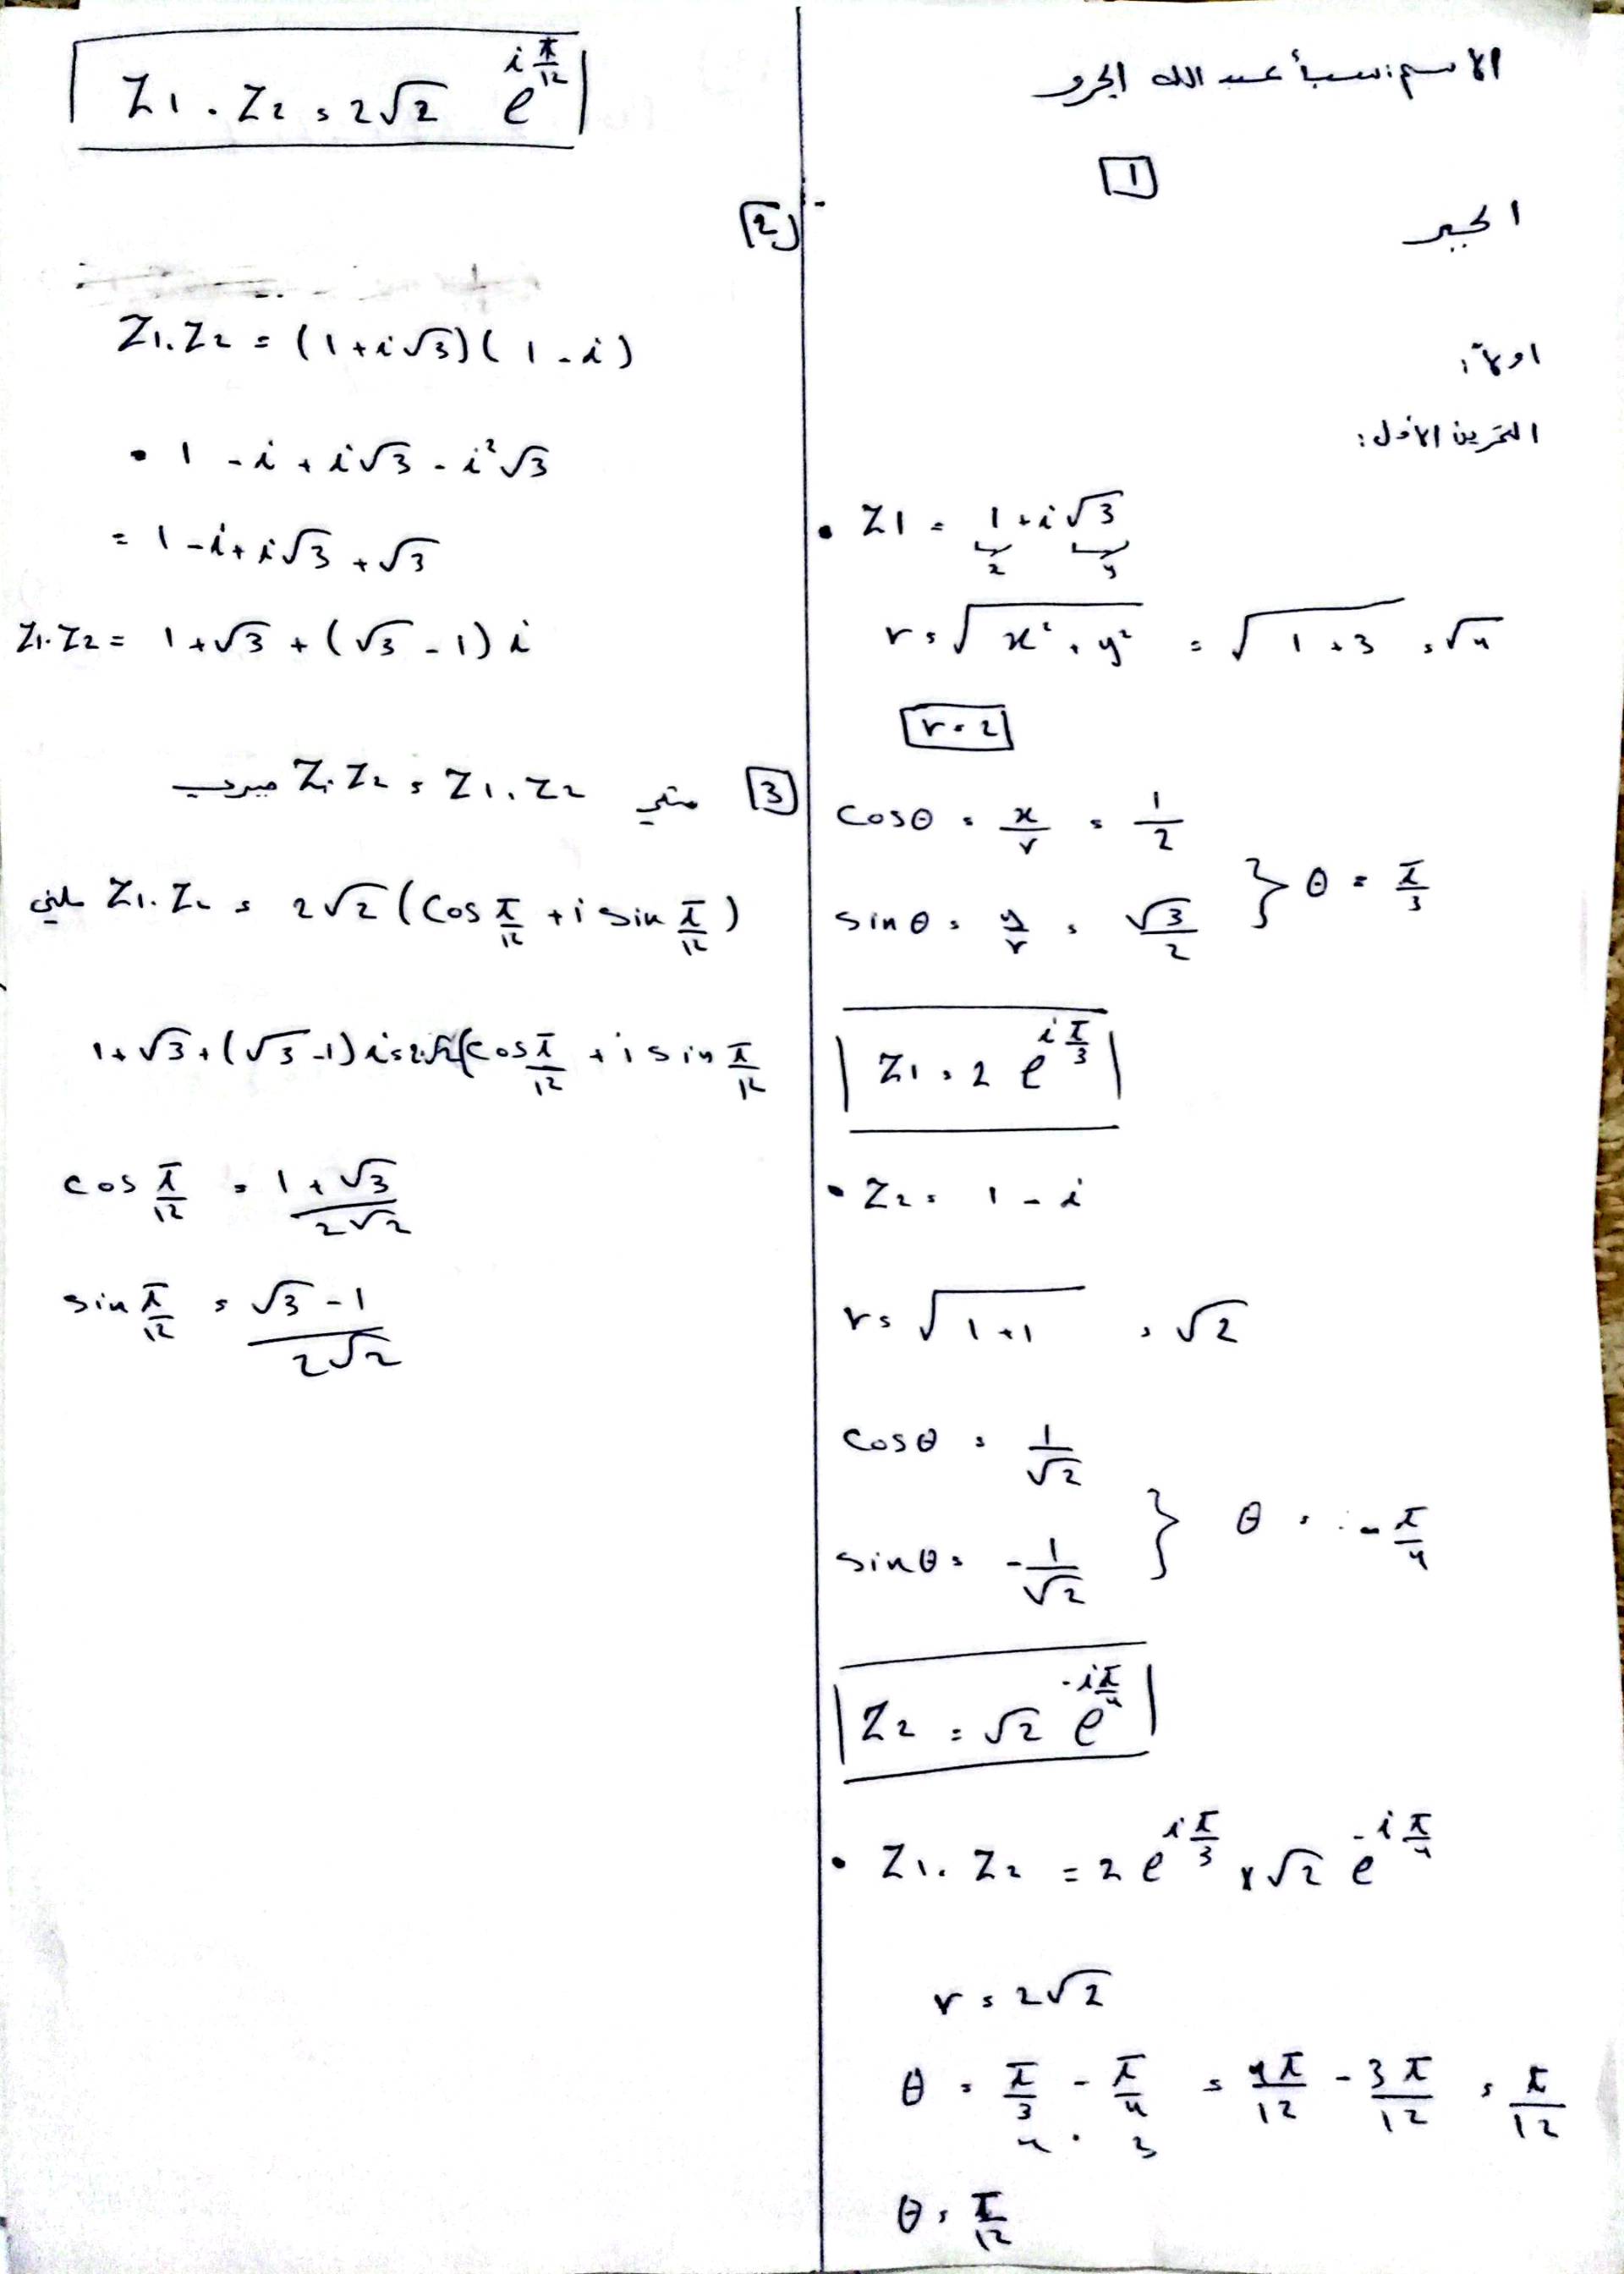 الاسم: سبأ عبد الله الجرو
1
الجبر
اولاً:
التمرين الأول:
• Z1 = 1 + i√3
x y
r = √x² + y² = √1 + 3 = √4
r = 2
cosθ = x/r = 1/2
sinθ = y/r = √3/2 } θ = π/3
Z1 = 2 e^{iπ/3}
• Z2 = 1 - i
r = √1+1 = √2
cosθ = 1/√2
sinθ = -1/√2 } θ = -π/4
Z2 = √2 e^{-iπ/4}
• Z1 . Z2 = 2 e^{iπ/3} x √2 e^{-iπ/4}
r = 2√2
θ = π/3 - π/4 = 4π/12 - 3π/12 = π/12
4 3
θ = π/12
Z1 . Z2 = 2√2 e^{iπ/12}
2
Z1.Z2 = (1 + i√3)(1 - i)
= 1 - i + i√3 - i²√3
= 1 - i + i√3 + √3
Z1.Z2 = 1 + √3 + (√3 - 1) i
3 Z1.Z2 = Z1.Z2
Z1.Z2 = 2√2 (cos π/12 + i sin π/12)
1 + √3 + (√3 - 1) i = 2√2 (cos π/12 + i sin π/12
cos π/12 = 1 + √3/2√2
sin π/12 = √3 - 1/2√2